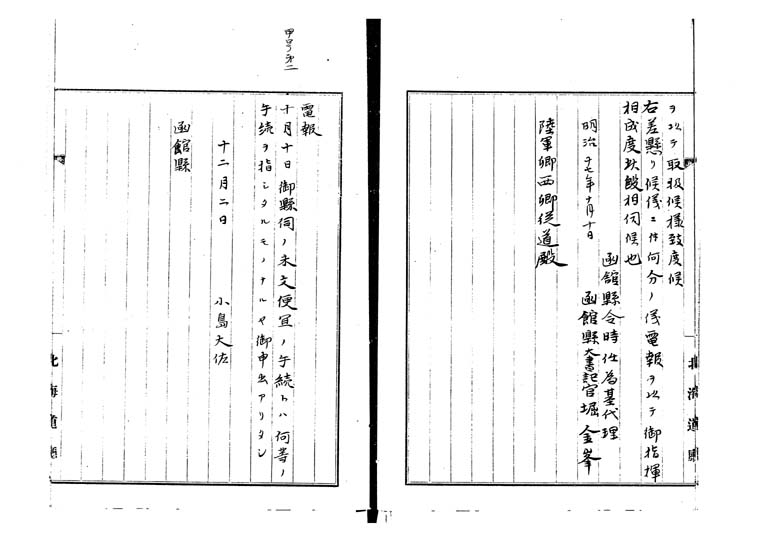 ヲ以テ取扱候様致度候
右差懸リ候儀ニ付何分ノ儀電報ヲ以テ御指揮
相成度此段相伺候也
函館縣令時任為基代理
明治十七年十月十日 函館縣大書記官堀金峯
陸軍卿西郷従道殿
甲号第二
電報
十月十日御縣伺ノ末文便宜ノ手続トハ何等ノ
手続ヲ指シタルモノナルヤ御申出アリタシ
十二月二日 小島大佐
函館縣
北海道廳